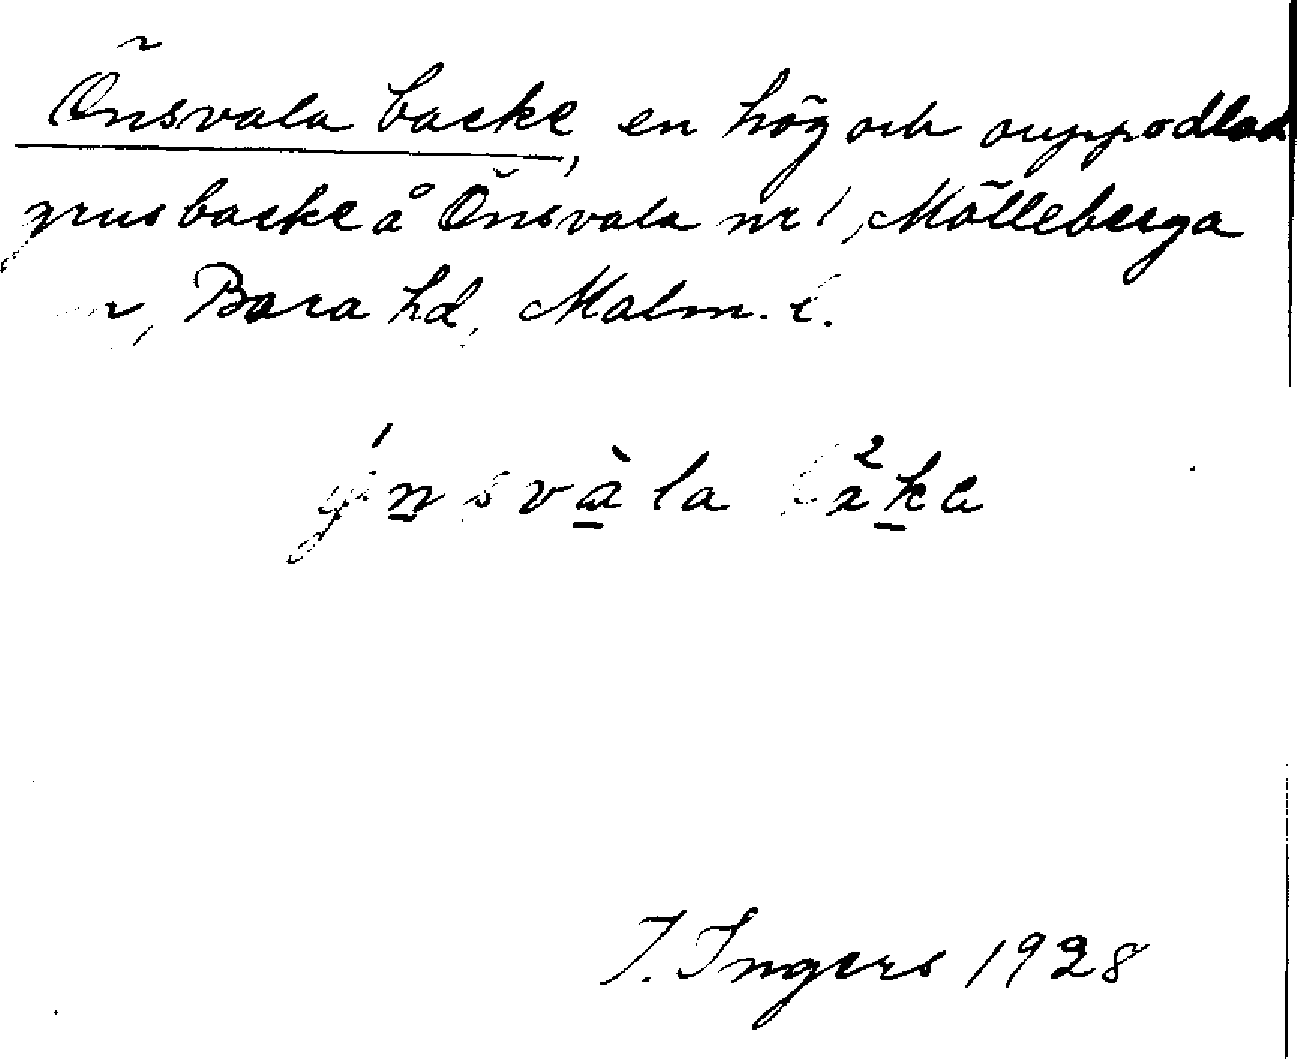 Önsvala backe, en hög och ouppodlad
grusbacke å Önsvala nr 1, Mölleberga
Bara hd, Malm. l.
I. Ingers 1928